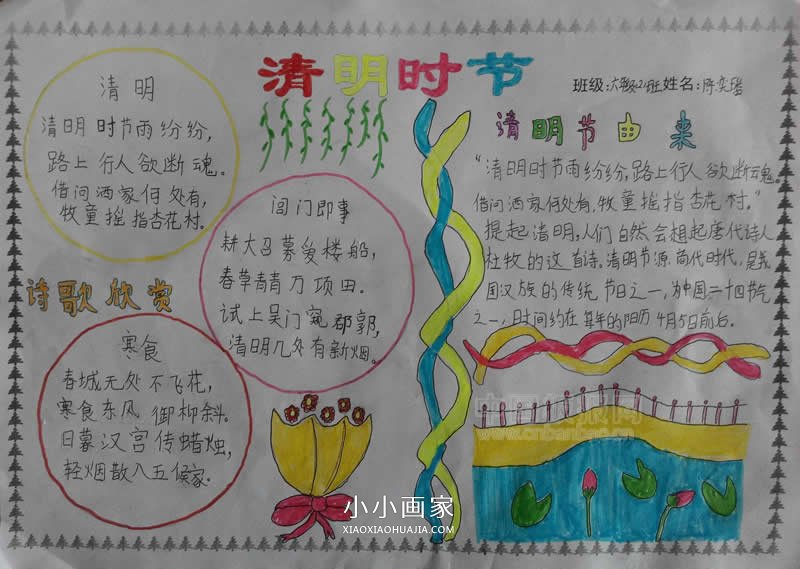 清明时节
班级:六年级2班姓名:陈奕瑶
清明
清明时节雨纷纷,
路上行人欲断魂。
借问酒家何处有,
牧童摇指杏花村。
诗歌欣赏
闾门即事
耕大召募爱楼船,
春草青青万项田.
试上吴门窥郡郭,
清明几处有新烟。
寒食
春城无处不飞花,
寒食东风御柳斜。
日暮汉宫传蜡烛,
轻烟散入五侯家.
清明节由来
"清明时节雨纷纷,路上行人欲断魂。
借问酒家何处有,牧童摇指杏花村."
提起清明,人们自然会想起唐代诗人
杜牧的这首诗.清明节源 商代时代,是我
国汉族的传统节日之一,为中国二十四节气
之一,时间约在每年的阳历4月5日前后。
中国板报网
www.cnbanbao.cn
小小画家
XIAOXIAOHUAJIA.COM